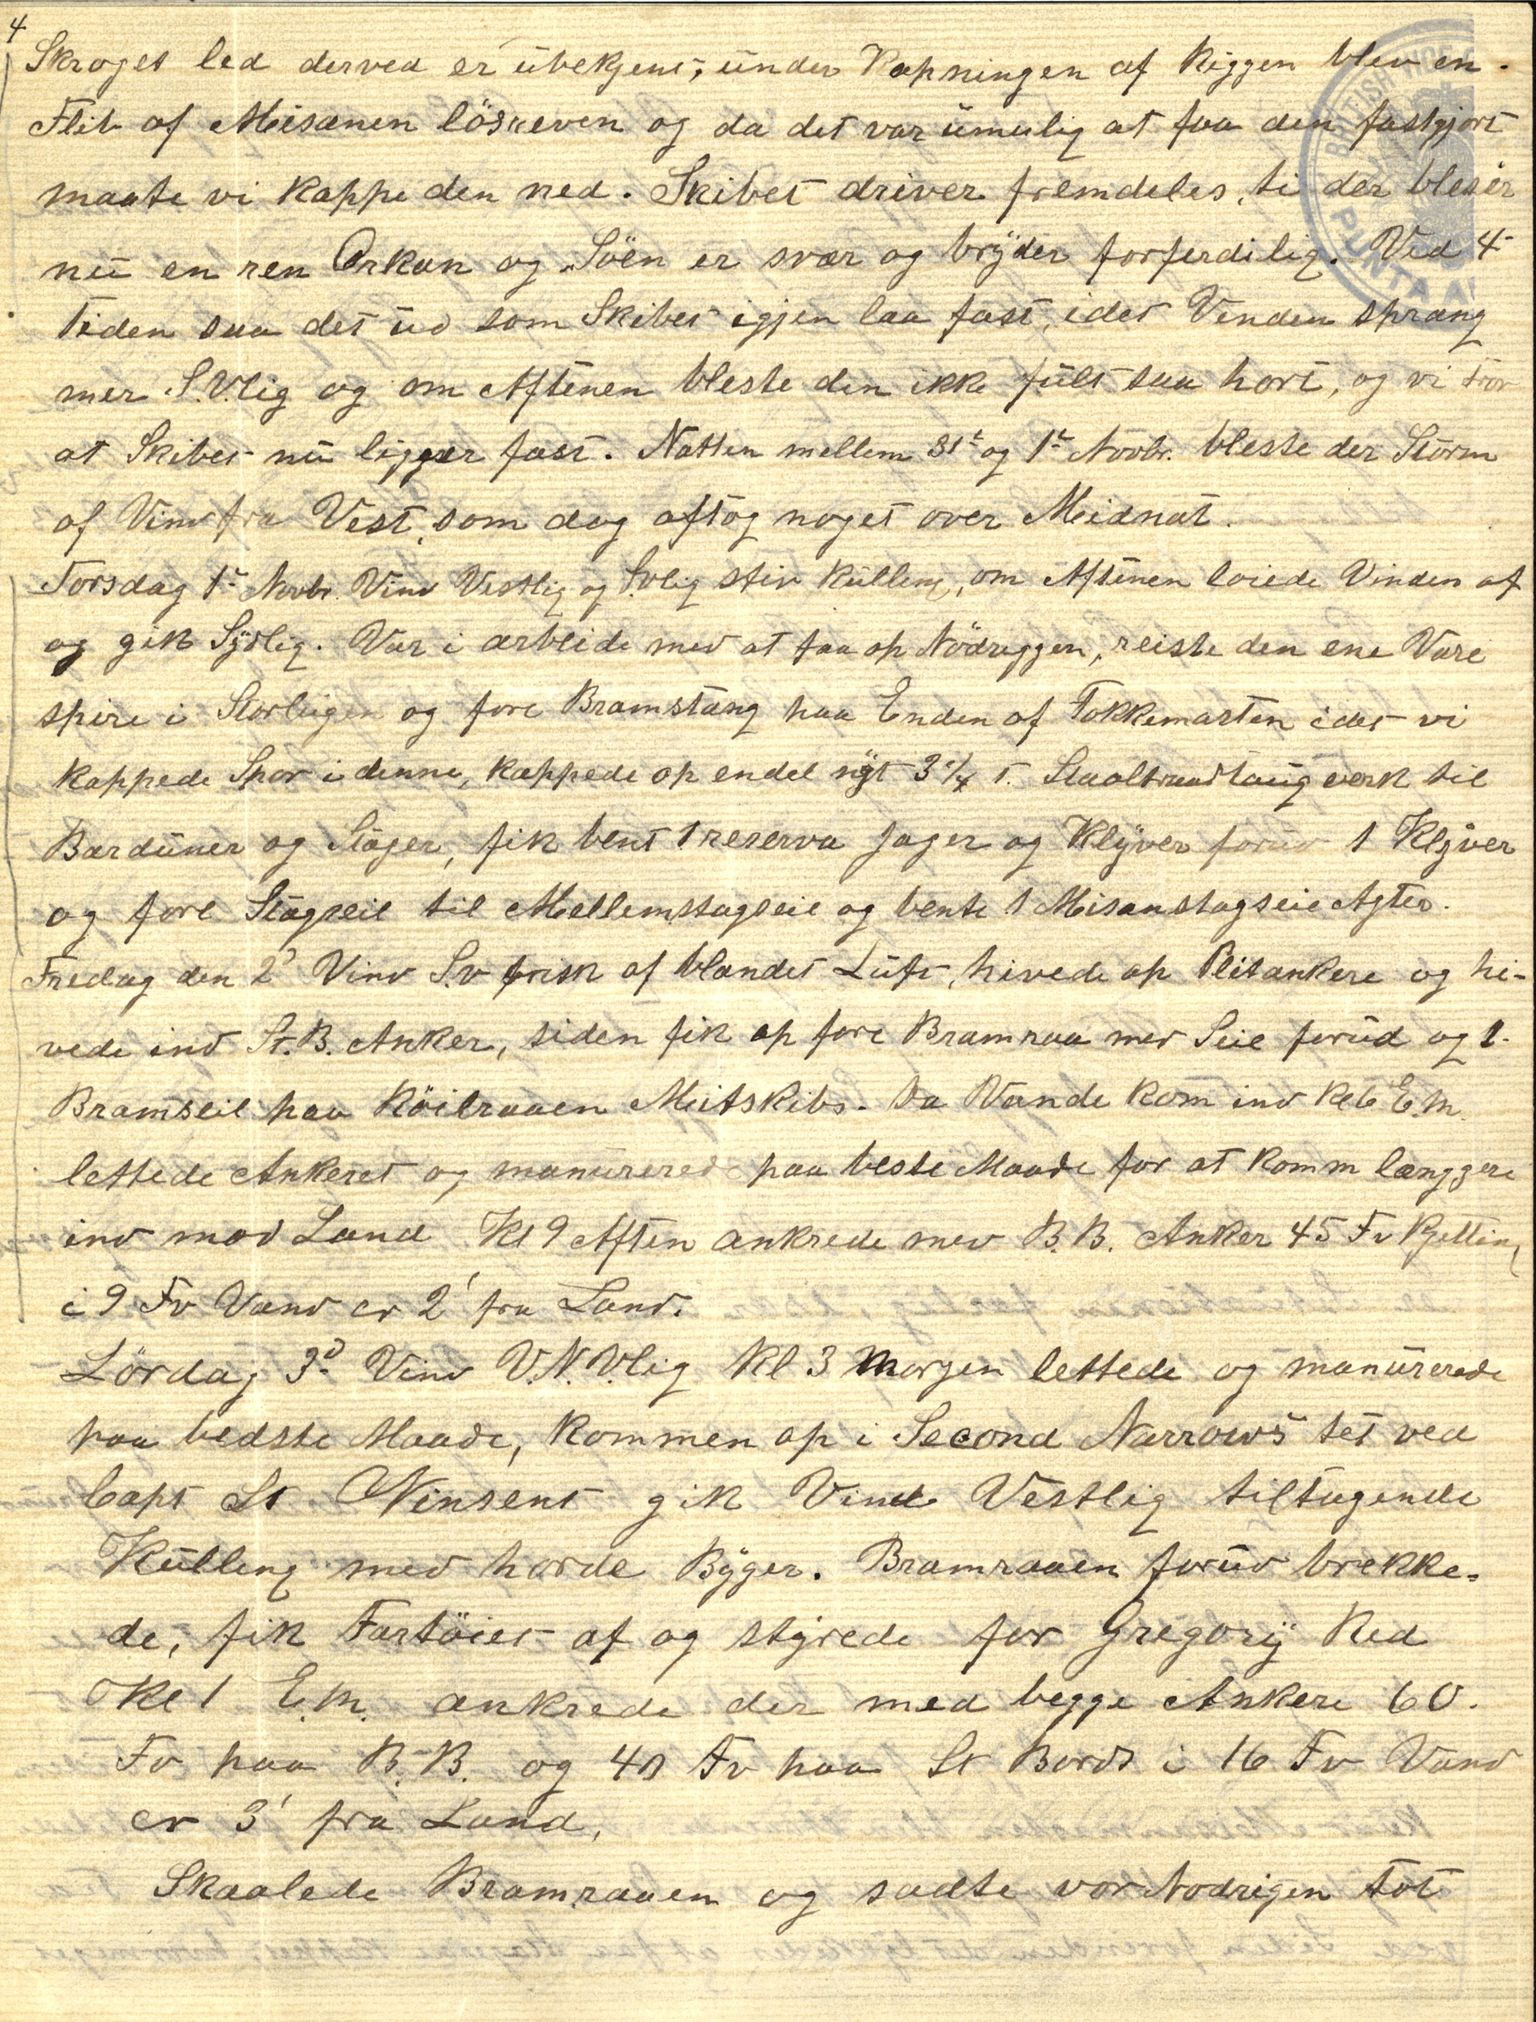 4
Skroget led derved er übekjent, ünder Kapningen af Riggen blev en
Flik af Mesanen löskeven og da det var ümulig at faa den fastgjort
maate vi kappe den ned. Skibet driver fremdeles, ti der bleser
nü en ren Orkan og Söen er svær og brÿder forferdilig. Ved 4-
Tiden saa det üd som Skibet igjen laa fast, idet Vinden sprang
mer S.V.lig og om Aftenen bleste den ikke fült saa hart, og vi tror
at Skibet nü ligger fast. Natten mellem 31t og 1t Novbr. bleste der Storm
af Vind fra Vest, som dog aftog noget over Midnat.
Torsdag 1t Novbr. Vind Vestlig og S.vlig stiv Külling, om Aftenen loiede Vinden af
og gik Sÿdlig. Var i arbeide med at faa op Nödriggen, reiste den ene Vare
spire i Storlügen og fore Bramstang paa Enden af Fokkemasten idet vi
kappede Spor i denne, kappede op endel nÿt 3 1/4 T. Staaltraadtaugverk til
Bardüner og Stager, fik bent 1 reserva Jager og Klÿver forüd 1 Klÿver
og fore Stagseil til Mellemstagseil og bente 1 Misanstagseil Agter.
Fredag den 2d Vind S.v frisk af blandet Lüft, hivede op Pliktankere og hi-
vede ind St.B. Anker, siden fik op fore Bramraa med Seil forüd og 1
Bramseil paa Röilraaen Mitskibs. Da Vande kom ind Kl 6 E.M.
lettede Ankeret og manürerede paa beste Maade for at komm længgere
ind mod Land Kl 9 Aften ankrede med B.B. Anker 45 Fv Kjetting
i 9 Fv Vand cr 2' fra Land.
Lördag 3d Vind V.N.V.lig Kl 3 Morgen lettede og manürerede
paa bedste Maade, kommen op i Second Narrows tet ved
Capt St Vinsent gik Vind Vestlig tiltagende
Külling med harde Bÿger. Bramraaen forüd brekke-
de, fik Fartöiet af og stÿrede for Gregorÿ Red
Kl 1 E.M. ankrede der med begge Ankere 60
Fv paa B.B. og 40 Fv paa St Bord i 16 Fv Vand
cr 3' fra Land,
Skaalede Bramraaen og sadte vor Nodrigen tot
BRITISH
PUNTA A